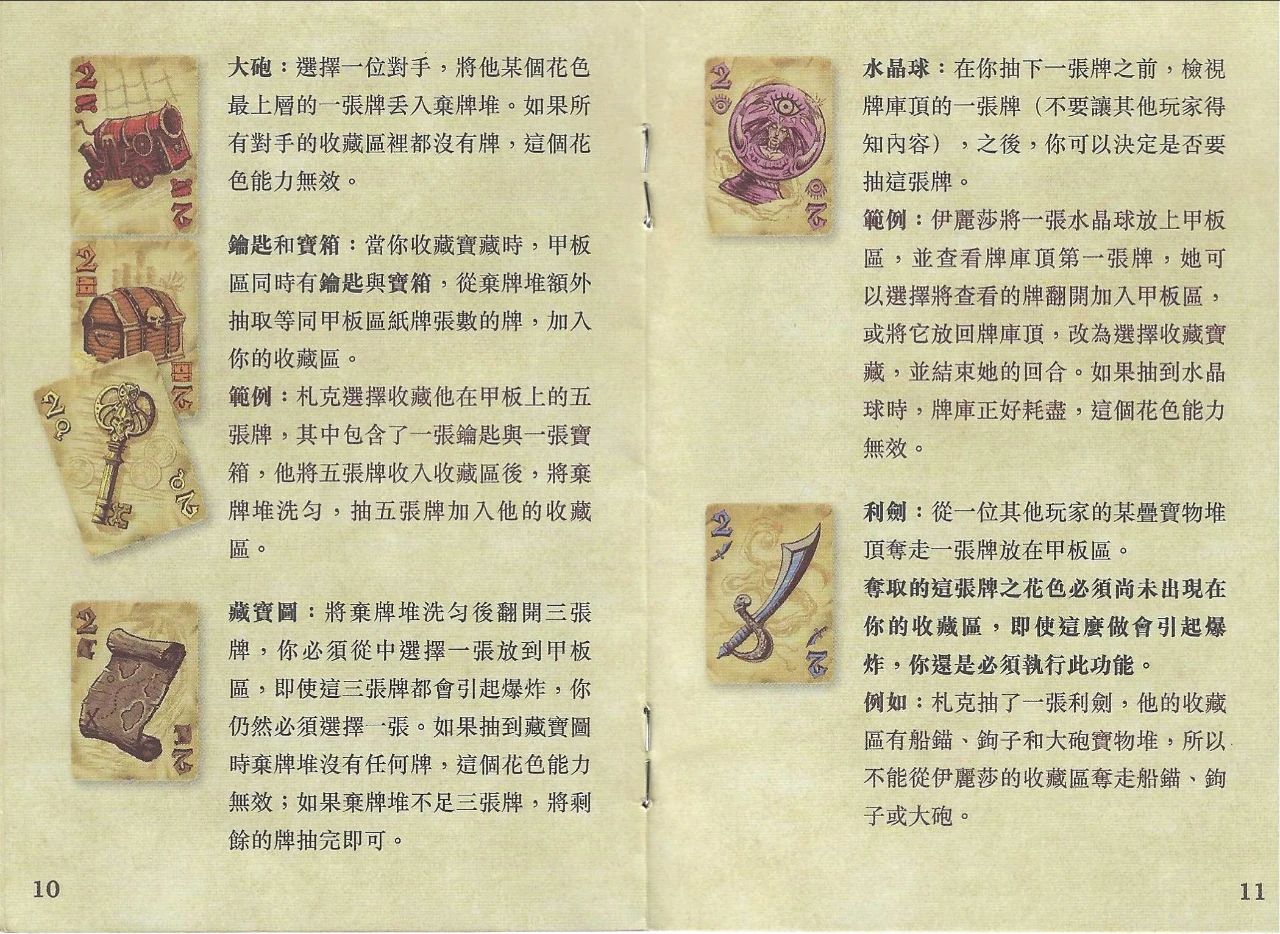 大砲：選擇一位對手，將他某個花色
最上層的一張牌丟入棄牌堆。如果所
有對手的收藏區裡都沒有牌，這個花
色能力無效。
鑰匙和寶箱：當你收藏寶藏時，甲板
區同時有鑰匙與寶箱，從棄牌堆額外
抽取等同甲板區紙牌張數的牌，加入
你的收藏區。
範例：札克選擇收藏他在甲板上的五
張牌，其中包含了一張鑰匙與一張寶
箱，他將五張牌收入收藏區後，將棄
牌堆洗匀，抽五張牌加入他的收藏
區。
藏寶圖：將棄牌堆洗匀後翻開三張
牌，你必須從中選擇一張放到甲板
區，即使這三張牌都會引起爆炸，你
仍然必須選擇一張。如果抽到藏寶圖
時棄牌堆沒有任何牌，這個花色能力
無效；如果棄牌堆不足三張牌，將剩
餘的牌抽完即可。
10
水晶球：在你抽下一張牌之前，檢視
牌庫頂的一張牌（不要讓其他玩家得
知內容），之後，你可以決定是否要
抽這張牌。
範例：伊麗莎將一張水晶球放上甲板
區，並查看牌庫頂第一張牌，她可
以選擇將查看的牌翻開加入甲板區，
或將它放回牌庫頂，改為選擇收藏寶
藏，並結束她的回合。如果抽到水晶
球時，牌庫正好耗盡，這個花色能力
無效。
利劍：從一位其他玩家的某疊寶物堆
頂奪走一張牌放在甲板區。
奪取的這張牌之花色必須尚未出現在
你的收藏區，即使這麼做會引起爆
炸，你還是必須執行此功能。
例如：札克抽了一張利劍，他的收藏
區有船錨、鉤子和大砲寶物堆，所以
不能從伊麗莎的收藏區奪走船錨、鉤
子或大砲。
11
2
2
2
2
2
2
2
2
2
2
2
2